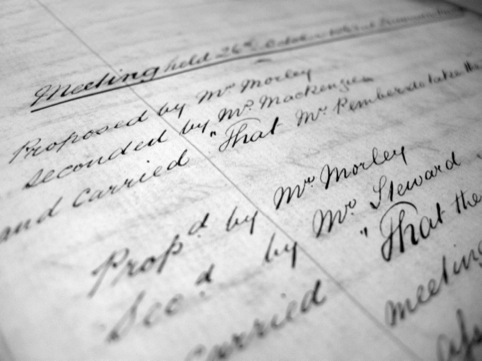 Meeting held 26th October
Proposed by Mr Morley
seconded by Mr Mackenzie
and carried "That Mr Pemberdo take the
Prop.d by Mr Morley
Sec.d by Mr Steward
carried "That the
meeting